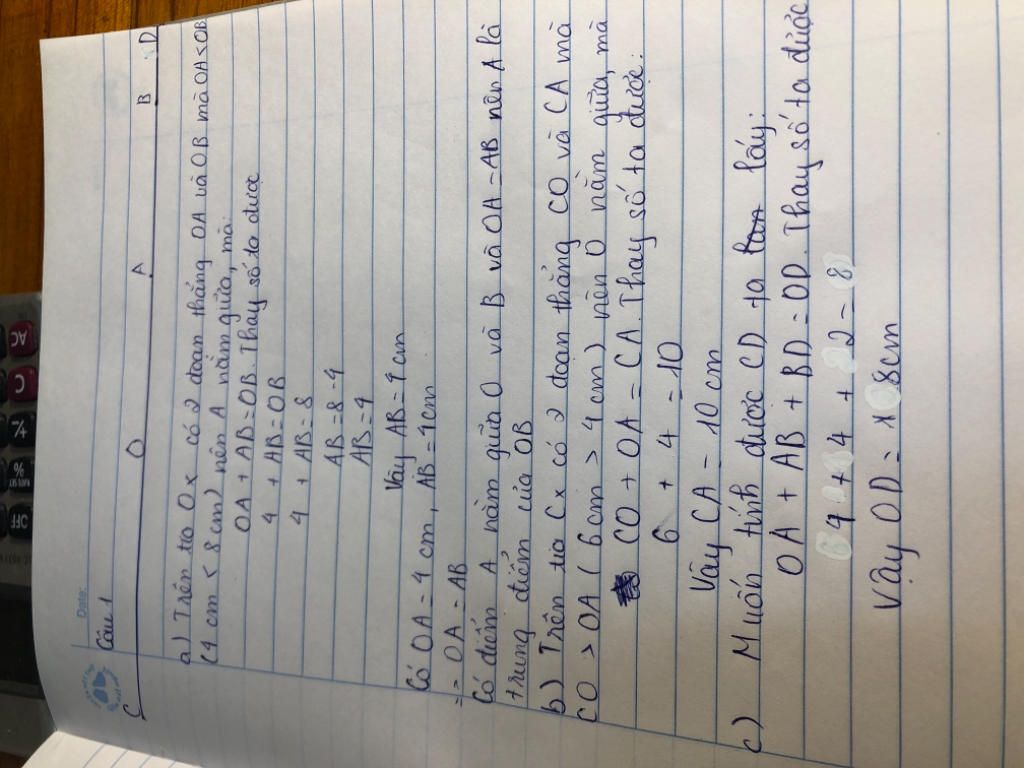 Date:
Câu 1
C O A B D
a) Trên tia Ox có 2 đoạn thẳng OA và OB mà OA < OB
(4 cm < 8 cm) nên A nằm giữa, mà:
OA + AB = OB. Thay số ta được
4 + AB = OB
4 + AB = 8
AB = 8 - 4
AB = 4
Vậy AB = 4 cm
Có OA = 4 cm, AB = 4cm
=> OA = AB
Có điểm A nằm giữa O và B và OA = AB nên A là
trung điểm của OB
b) Trên tia Cx có 2 đoạn thẳng CO và CA mà
CO > OA (6 cm > 4 cm) nên O nằm giữa, mà
CO + OA = CA. Thay số ta được:
6 + 4 = 10
Vậy CA = 10 cm
c) Muốn tính được CD ta lấy:
OA + AB + BD = OD. Thay số ta được
4 + 4 + 2 = 8
Vậy OD = 8cm
OFF
%
+/-
C
AC